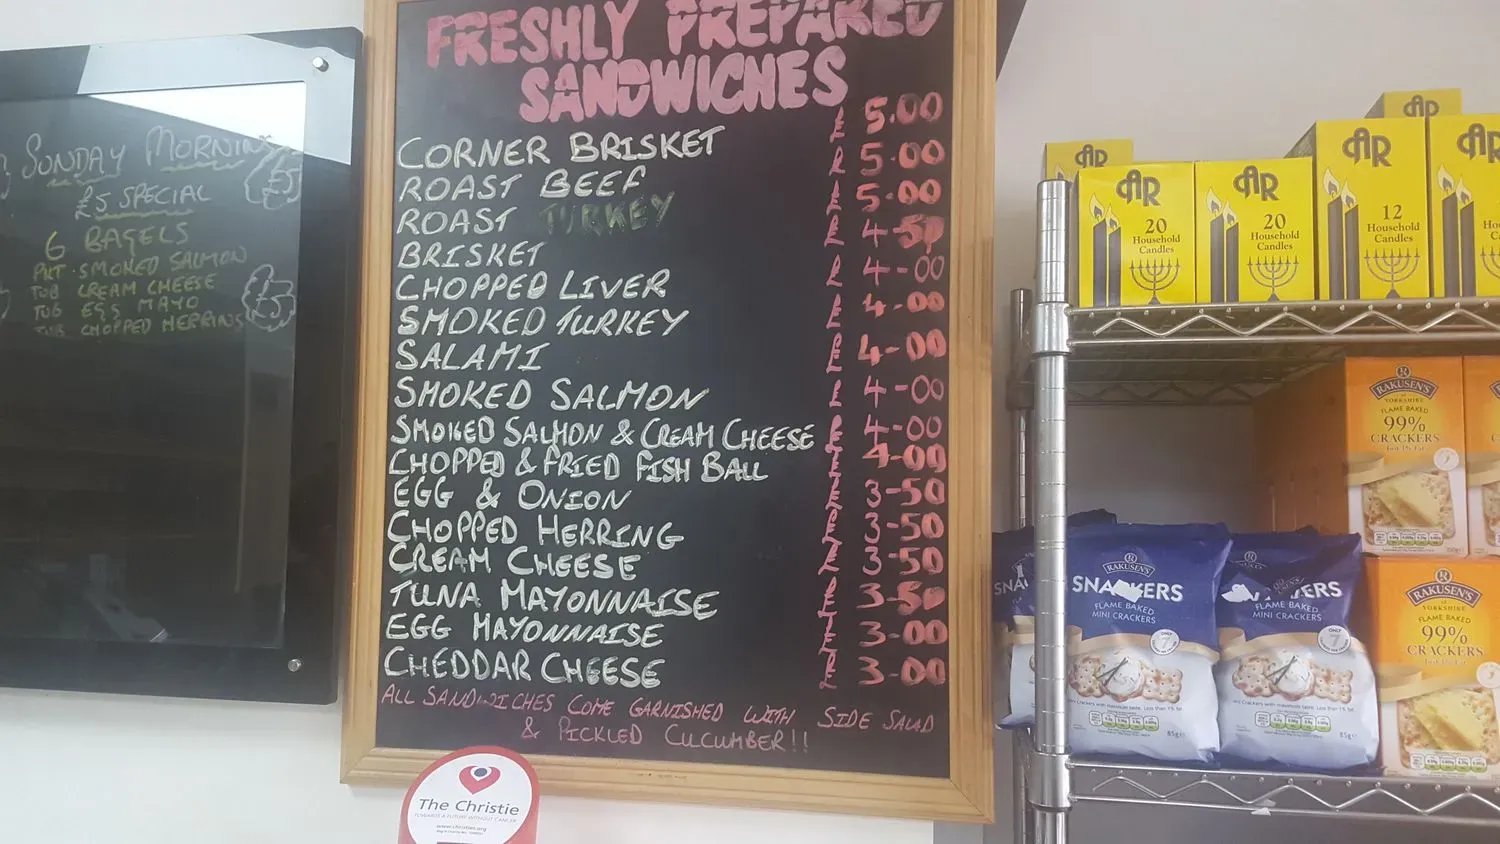 SUNDAY MORNING
£5 SPECIAL
£5
6 BAGELS
PKT SMOKED SALMON
TUB CREAM CHEESE
TUB EGG MAYO
TUB CHOPPED HERRING
£5
FRESHLY PREPARED
SANDWICHES
CORNER BRISKET £ 5.00
ROAST BEEF £ 5.00
ROAST TURKEY £ 5.00
BRISKET £ 4-50
CHOPPED LIVER £ 4-00
SMOKED TURKEY £ 4-00
SALAMI £ 4-00
SMOKED SALMON £ 4-00
SMOKED SALMON & CREAM CHEESE £ 4-00
CHOPPED & FRIED FISH BALL £ 4-00
EGG & ONION £ 3-50
CHOPPED HERRING £ 3-50
CREAM CHEESE £ 3-50
TUNA MAYONNAISE £ 3-50
EGG MAYONNAISE £ 3-00
CHEDDAR CHEESE £ 3-00
ALL SANDWICHES COME GARNISHED WITH SIDE SALAD
& PICKLED CUCUMBER!!
The Christie
TOWARDS A FUTURE WITHOUT CANCER
www.christies.org
AR
AR
AR
20
Household
Candles
AR
20
Household
Candles
AR
12
Household
Candles
AR
RAKUSEN'S
OF YORKSHIRE
FLAME BAKED
99%
CRACKERS
Just 1% Fat
SNA
RAKUSEN'S
SNACKERS
FLAME BAKED
MINI CRACKERS
ONLY
7
85g
FLAME BAKED
MINI CRACKERS
ONLY
7
85g
RAKUSEN'S
OF YORKSHIRE
FLAME BAKED
99%
CRACKERS
Just 1% Fat